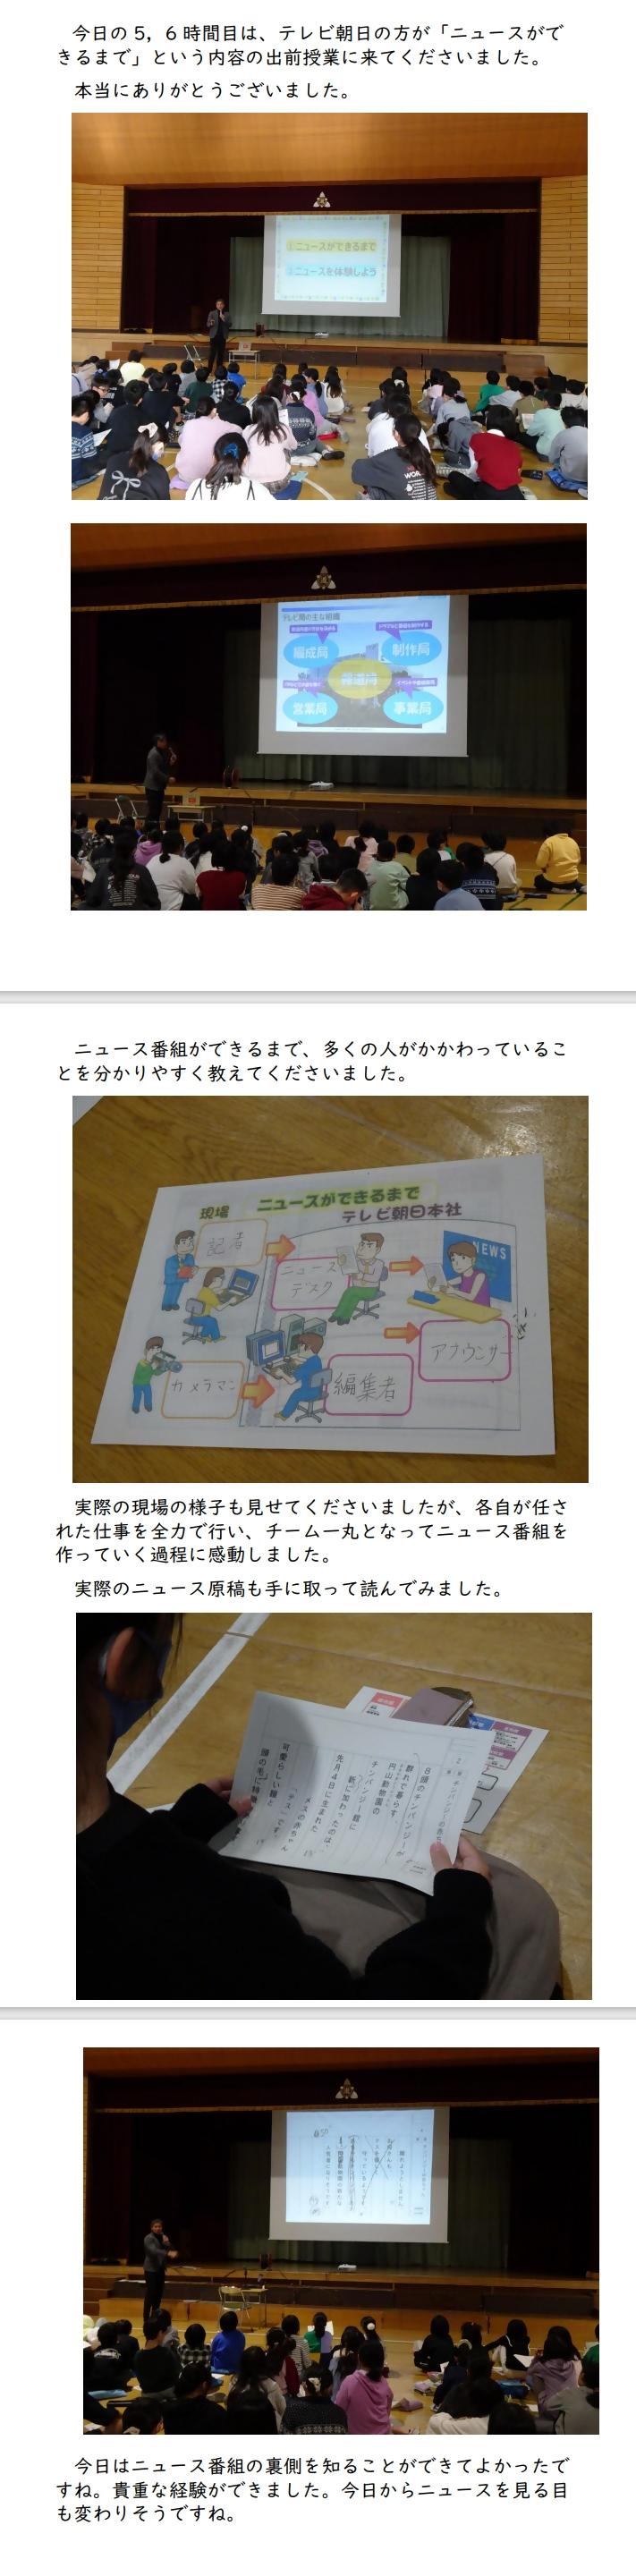 今日の5，6時間目は、テレビ朝日の方が「ニュースがで
きるまで」という内容の出前授業に来てくださいました。
本当にありがとうございました。
①ニュースができるまで
②ニュースを体験しよう
テレビ局の主な組織
編成局
制作局
報道局
営業局
事業局
ニュース番組ができるまで、多くの人がかかわっているこ
とを分かりやすく教えてくださいました。
ニュースができるまで
現場
テレビ朝日本社
記者
ニュース
デスク
NEWS
アナウンサー
カメラマン
編集者
実際の現場の様子も見せてくださいましたが、各自が任さ
れた仕事を全力で行い、チーム一丸となってニュース番組を
作っていく過程に感動しました。
実際のニュース原稿も手に取って読んでみました。
8頭のチンパンジーが
群れで暮らす、
円山動物園の
チンパンジー館に
新に加わったのは、
先月4日に生まれた
メスの赤ちゃん
「テス」です
可愛らしい瞳と
頭の毛に特徴
今日はニュース番組の裏側を知ることができてよかったで
すね。貴重な経験ができました。今日からニュースを見る目
も変わりそうですね。